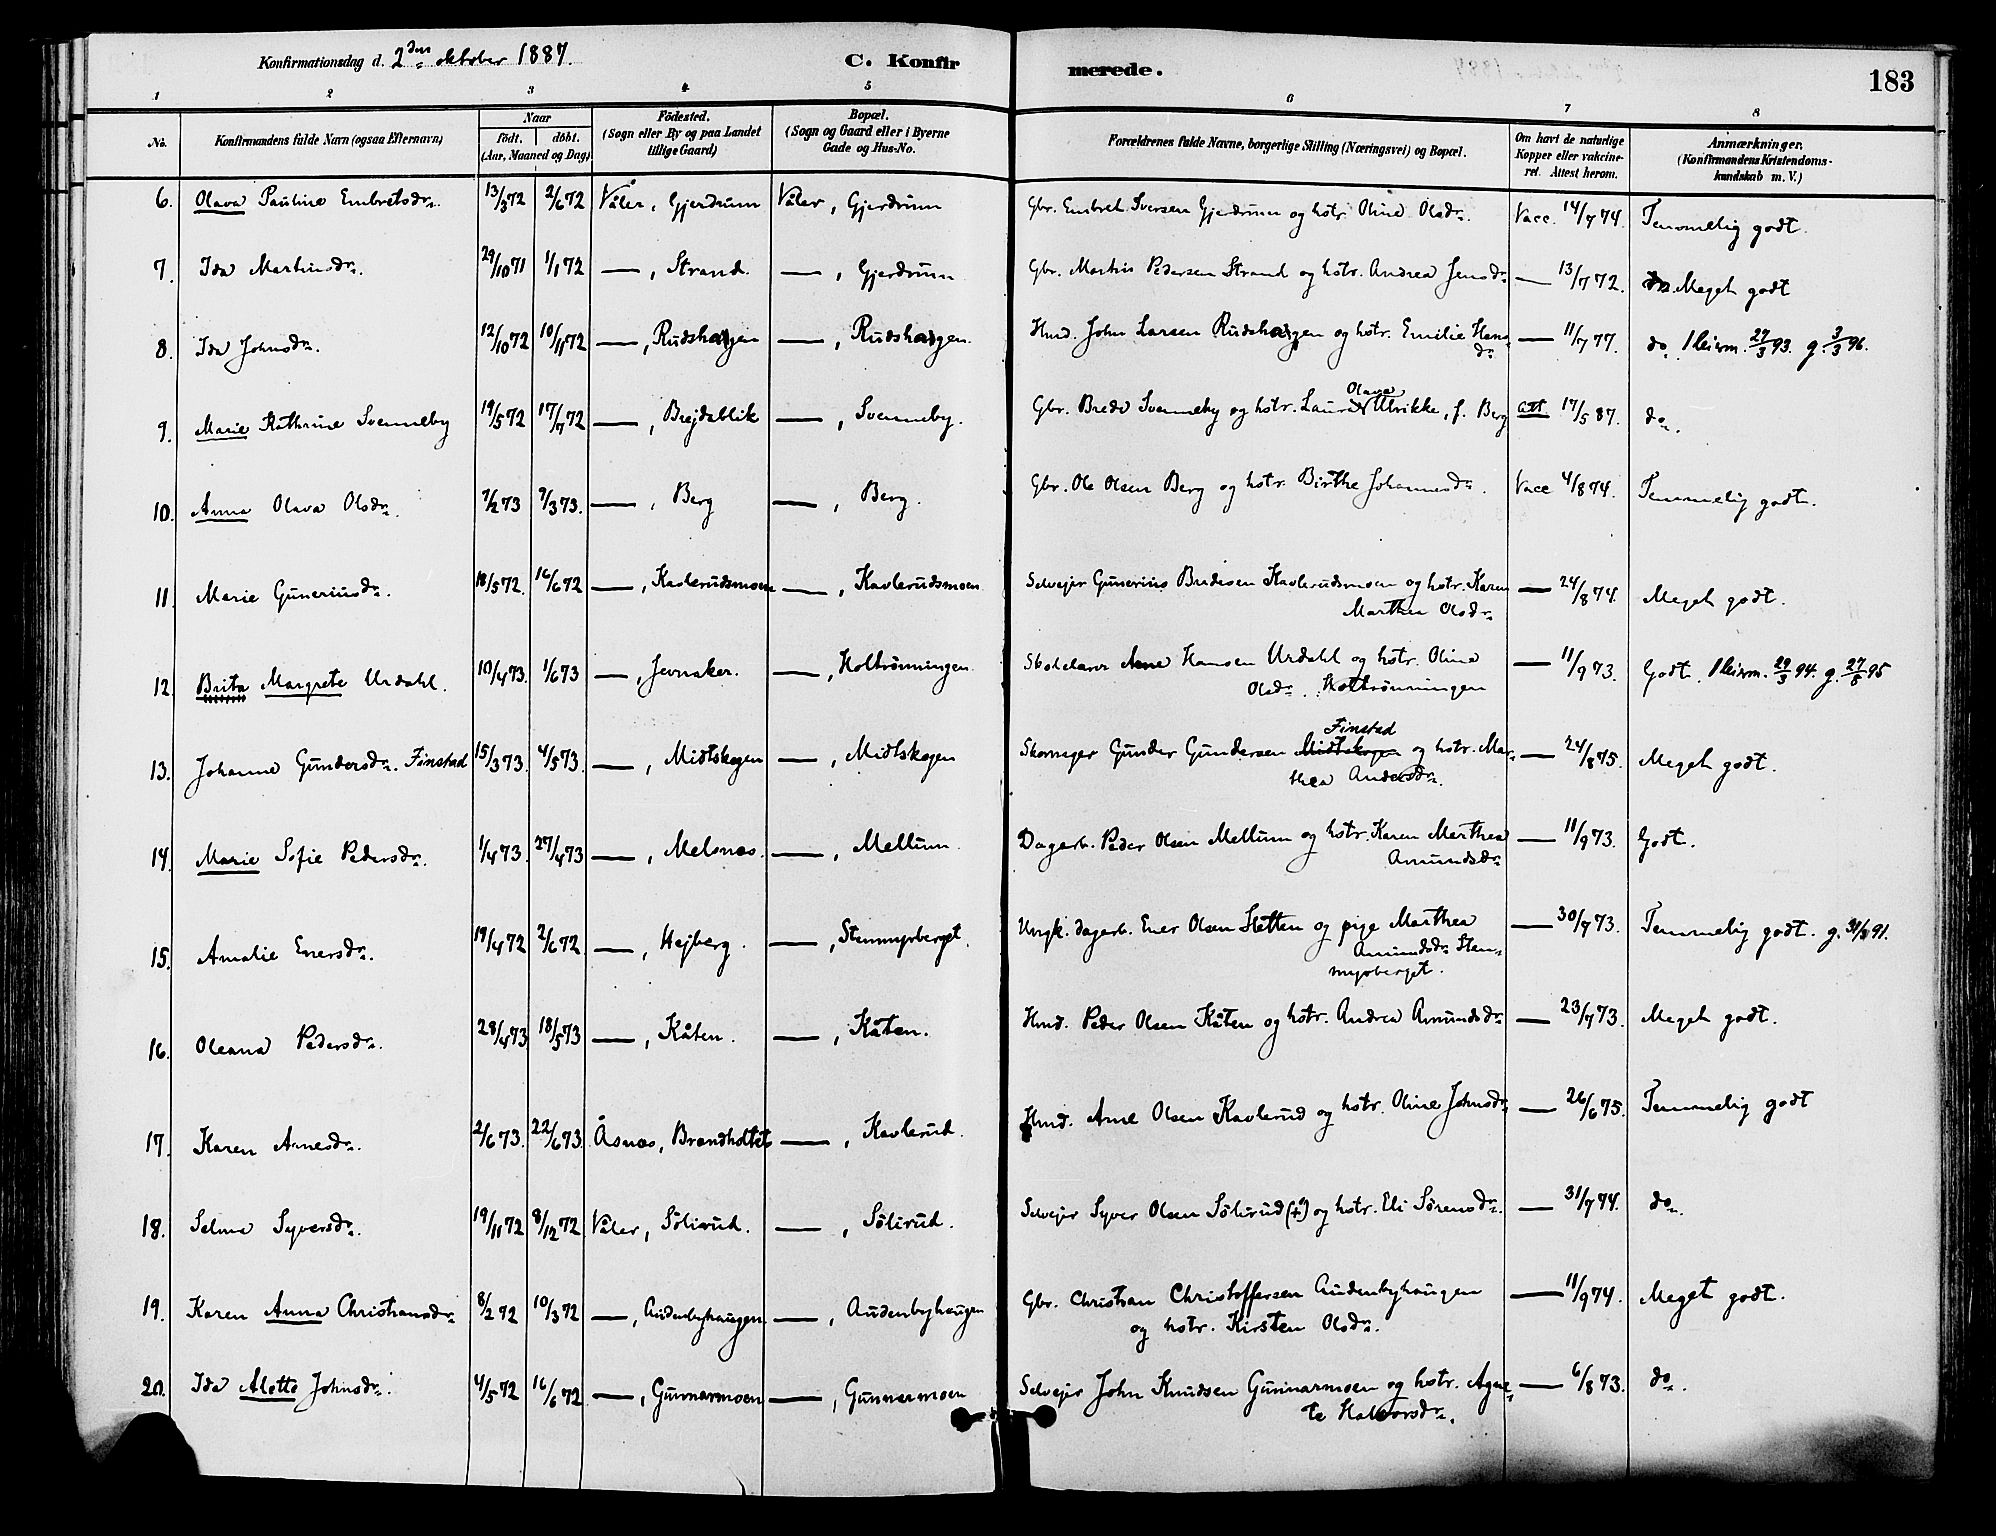 Konfirmationsdag d. 2den oktober 1887. C. Konfirmerede. 183
1 2 3 4 5 6 7 8
No. Konfirmandens fulde Navn (ogsaa Efternavn) Naar født. døbt. (Aar, Maaned og Dag) Fødested. (Sogn eller By og paa Landet tillige Gaard) Bopæl. (Sogn og Gaard eller i Byerne Gade og Hus-No. Forældrenes fulde Navne, borgerlige Stilling (Næringsvei) og Bopæl. Om havt de naturlige Kopper eller vakcineret. Attest herom. Anmærkninger. (Konfirmandens Kristendomskundskab m. V.)
6. Olava Pauline Embretsdr. 13/3 72 2/6 72 Våler, Gjerdrum Våler, Gjerdrum Gbr. Embret Iversen Gjerdrum og hstr. Oline Olsdr. Vacc. 14/7 74. Temmelig godt.
7. Ida Martinsdr. 29/10 71 1/1 72 —, Strand. —, Gjerdrum Gbr. Martin Pedersen Strand og hstr. Andrea Jensdr. — 13/7 72. do. Meget godt
8. Ida Johnsdr. 12/10 72 10/11 72 —, Rudshagen —, Rudshagen. Hmd. John Larsen Rudshagen og hstr. Emilie Hansdr. — 11/7 77. do. 27/3 93. g. 3/3 96.
9. Marie Kathrine Svenneby 19/5 72 17/7 72 —, Brejdablik —, Svenneby. Gbr. Brede Svenneby og hstr. Laura Olava Ulrikke, f. Berg att. 17/5 87. do.
10. Anna Olava Olsdr. 7/2 73 9/3 73. —, Berg —, Berg. Gbr. Ole Olsen Berg og hstr. Birthe Johannesdr. Vacc 4/8 74. Temmelig godt.
11. Marie Guneriusdr. 18/5 72. 16/6 72 —, Kavlerudsmoen —, Kavlerudsmoen Selvejer Gunerius Bredesen Kavlerudsmoen og hstr. Karen
Marthea Olsdr. — 24/8 74. Meget godt.
12. Brita Margrete Urdahl. 10/4 73. 1/6 73 —, Jevnaker. —, Holtrønningen. Skolelærer Arne Hansen Urdahl og hstr. Olina
Olsdr. Holtrønningen — 11/9 73. Godt. 29/3 94. g. 27/8 95
13. Johanne Gundersdr. Finstad 15/3 73. 4/5 73. —, Midtskogen —, Midtskogen Skomager Gunder Gundersen Midtskogen Finstad og hstr. Mar-
thea Andersdr. — 24/8 75. Meget godt.
14. Marie Sofie Pedersdr. 1/4 73. 27/4 73 —, Melsnes. —, Mellum. Dagarb. Peder Olsen Mellum og hstr. Karen Marthea
Amundsdr. — 11/9 73. Godt.
15. Amalie Enersdr. 19/4 72 2/6 72 —, Hejberg. —, Stenmyrberget. Ungk. dagarb. Ener Olsen Sletten og pige Marthea
Amundsdr. Sten-
myrberget. — 30/7 73. Temmelig godt. g. 31/8 91.
16. Oleana Pedersdr. 28/4 73 18/5 73 —, Kåten. —, Kåten. Hmd. Peder Olsen Kåten og hstr. Andrea Amundsdr. — 23/7 73. Meget godt.
17. Karen Arnesdr. 2/6 73. 22/6 73. Åsnes, Brandholtet —, Kavlerud. Hmd. Arne Olsen Kavlerud og hstr. Oline Johnsdr. — 26/6 75. Temmelig godt
18. Selma Syversdr. 19/11 72 8/12 72 Våler, Sølirud. —, Sølirud. Selvejer Syver Olsen Sølirud (†) og hstr. Eli Sørensdr. — 31/7 74. do.
19. Karen Anna Christiansdr. 8/2 72 10/3 72 —, Audenbyhaugen. —, Audenbyhaugen Gbr. Christian Christoffersen Audenbyhaugen
og hstr. Kirsten Olsdr. — 11/9 74. Meget godt.
20. Ida Alette Johnsdr. 4/5 72 16/6 72 —, Gunnarmoen —, Gunnarmoen Selvejer John Knudsen Gunnarmoen og hstr. Agne-
te Halvorsdr. — 6/8 73. do.